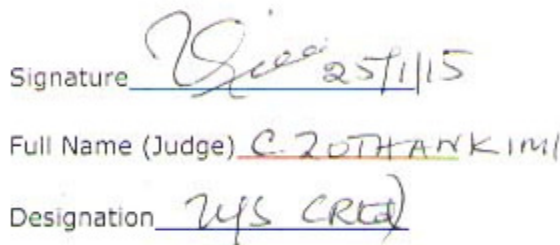 Signature 25/1/15
Full Name (Judge) C. ZOTHANKIMI
Designation